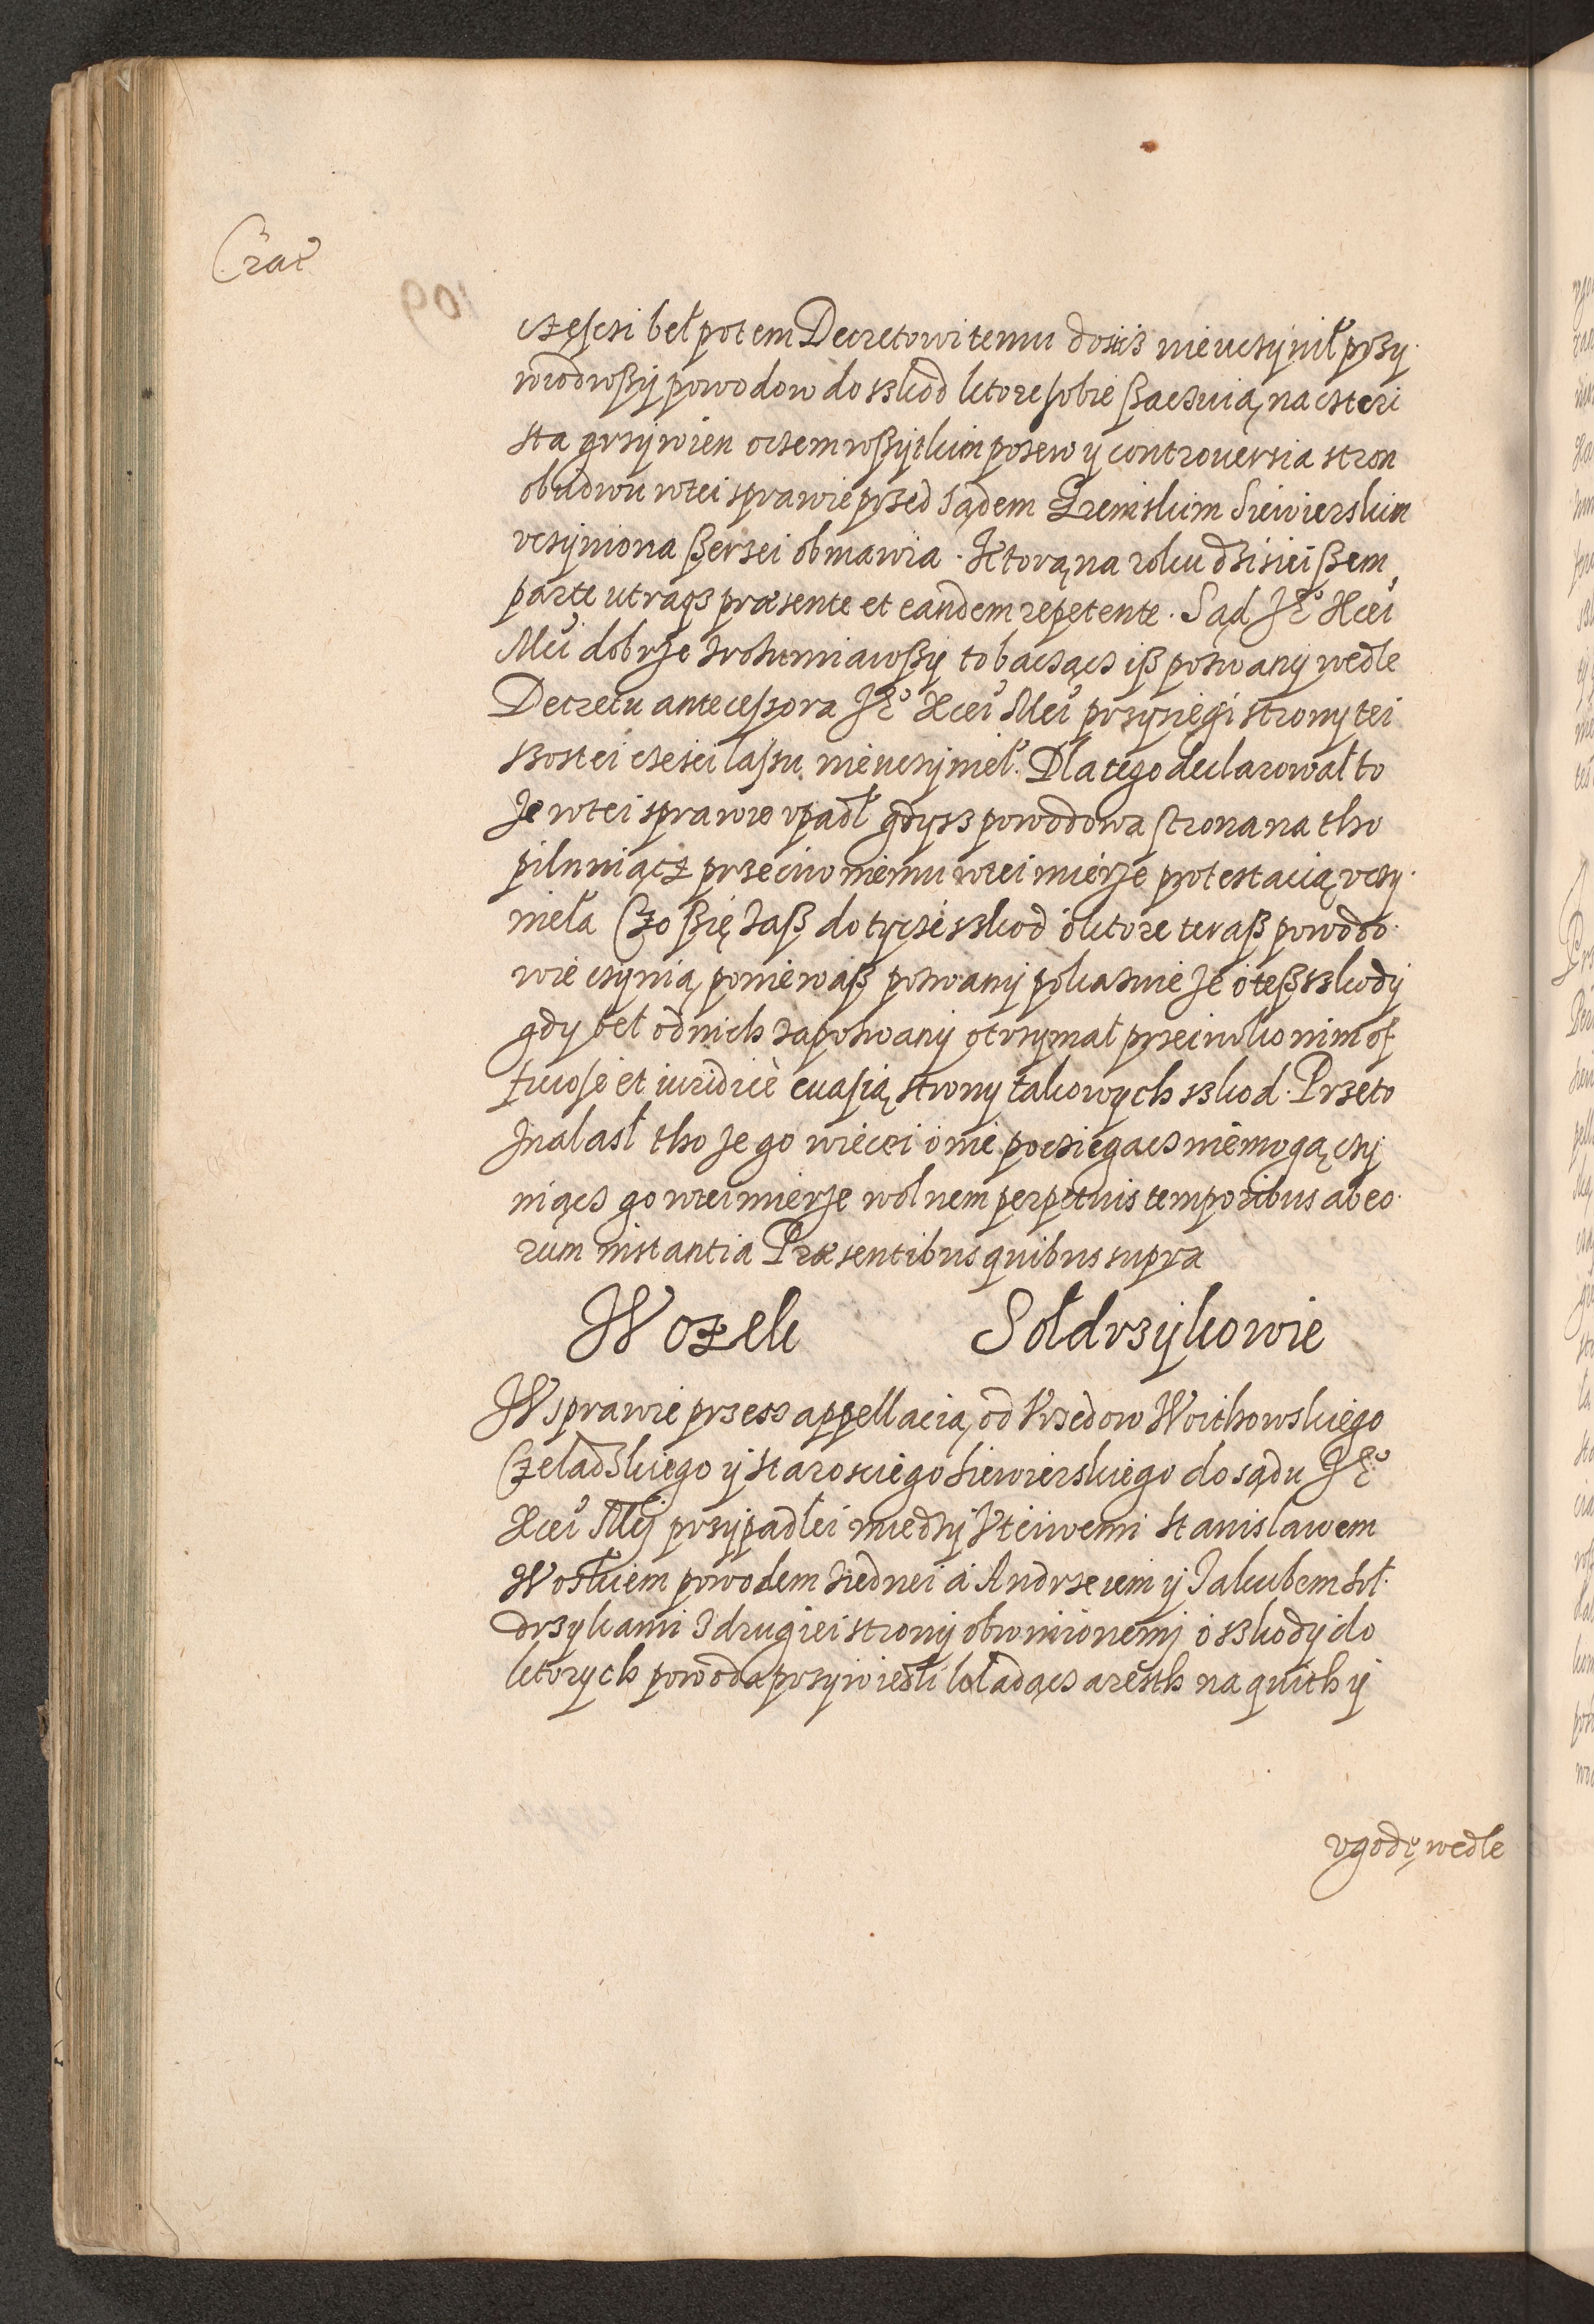 Crac̃
109
częsczi beł potem Decretowi temu dosicz nieuczynił przy
wiodwszy powodow do szkod ktore sobie szaczuią, na czteri
sta grzywien oczem wszytkim pozew y controuersia stron
obudwu wtei sprawie przed Sądem Zemskim Siewierskim
vczyniona szerzei obmawia. Ktorą na roku dzisieiszem
parte utraqз præsente et eandem repetente. Sąd Je° Xcei
Mci dobrze zrozumiawszy to baczącz isz pozwany wedle
Decretu antecessora Je° Xcei Mci przysięgi strony tei
szostei części lassu nieuczynieł. Dla tego declarował to
że wtei sprawie vpadł gdysz powodowa strona na tho
pilnuiącz przeciwo niemu wtei mierze protestacią vczy
nieła Czo się zasz dotycze szkod o ktore terasz powodo
wie czynią, poniewasz pozwany pokazuie że o tesz szkody
gdy beł odnich zapozwany otrzymał przeciwko nim of
ficiose et iuridicè euasią strony takowych szkod. Przeto
znalasł tho że go więcei o nie pocziegacz niemogą, czy
niącz go wtei mierze wolnem perpetuis temporibus ab eo
rum instantia Præsentibus quibus supra
Wozek Sołdrzykowie
W sprawie przess appellacią od Vrzędow Woithowskiego
Czeladzkiego y Staroscięgo Siewierskiego do sądu Je°
Xcei Mci przypadłei między Vtciwemi Stanisławem
Woskiem powodem ziednei a Andrzeiem y Jakubem Soł
drzykami z drugiei strony obwinionemi o szkody do
ktorych powoda przywiedli kładącz aresth na quith y
vgodę wedle